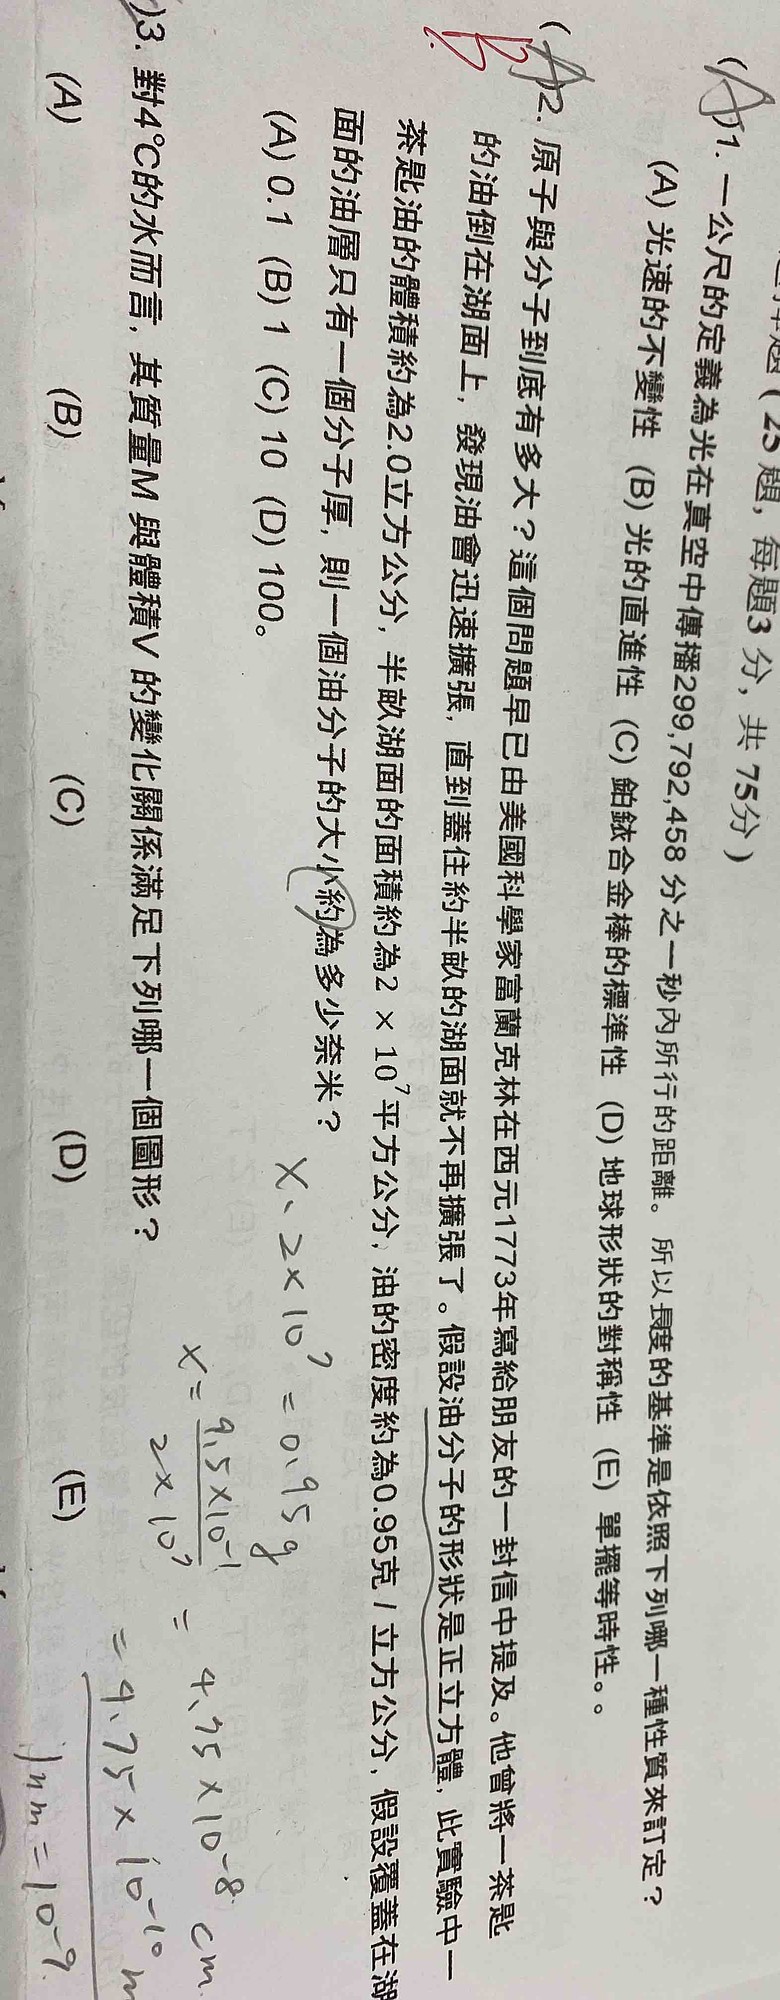 題 ( 25 題, 每題3 分, 共 75分 )
(A)1. 一公尺的定義為光在真空中傳播299,792,458 分之一秒內所行的距離。所以長度的基準是依照下列哪一種性質來訂定？
(A) 光速的不變性 (B) 光的直進性 (C) 鉑銥合金棒的標準性 (D) 地球形狀的對稱性 (E) 單擺等時性。。
(A)2. 原子與分子到底有多大？這個問題早已由美國科學家富蘭克林在西元1773年寫給朋友的一封信中提及。他曾將一茶匙
B
的油倒在湖面上, 發現油會迅速擴張, 直到蓋住約半畝的湖面就不再擴張了。假設油分子的形狀是正立方體, 此實驗中一
茶匙油的體積約為2.0立方公分, 半畝湖面的面積約為2 × 10⁷平方公分, 油的密度約為0.95克 / 立方公分, 假設覆蓋在湖
面的油層只有一個分子厚, 則一個油分子的大小約為多少奈米？
(A) 0.1 (B) 1 (C) 10 (D) 100。
X、2×10⁷ = 0.95 g
X = 9.5×10⁻¹ / 2×10⁷ = 4.75×10⁻⁸ cm
= 4.75×10⁻¹⁰ m
1nm = 10⁻⁹
)3. 對4°C的水而言, 其質量M 與體積V 的變化關係滿足下列哪一個圖形？
(A) (B) (C) (D) (E)